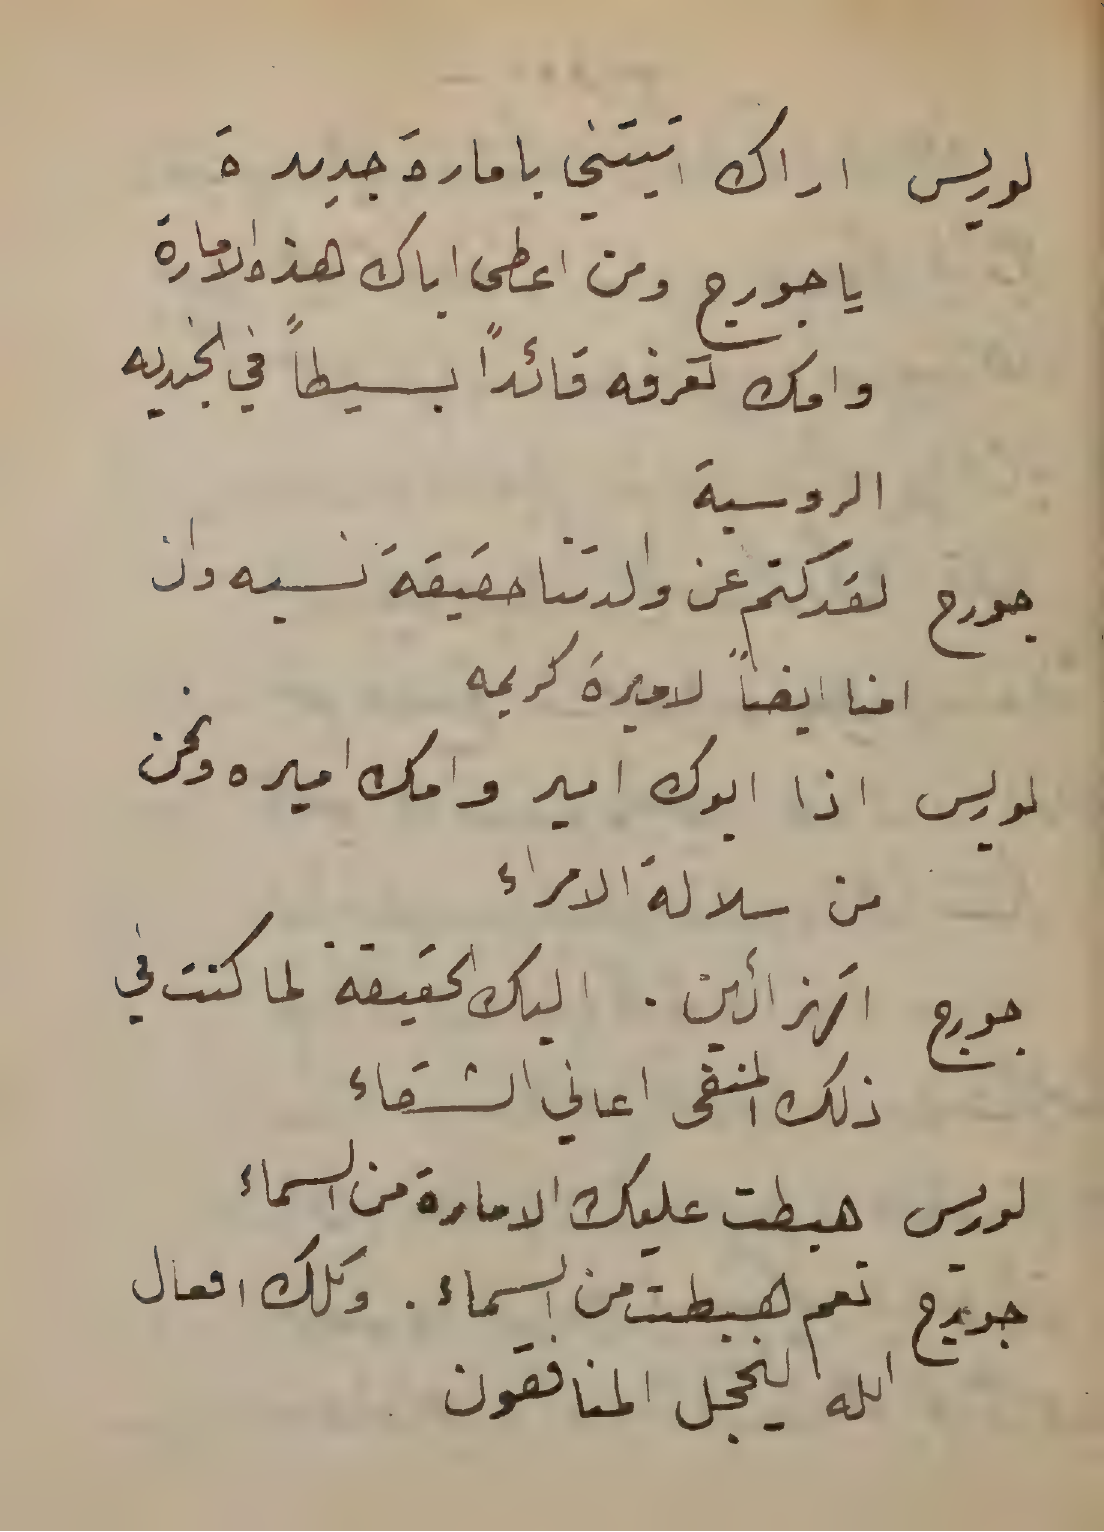 لوريس اراك اتيتني بامارة جديدة
يا جورج ومن اعطى اباك هذه الامارة
وامك تعرفه قائداً بسيطاً في الجنديه
الروسية
جورج لقد كتم عن والدتنا حقيقة نسبه وان
امنا ايضاً لاميرة كريمه
لوريس اذا ابوك امير وامك اميره ونحن
من سلالة الامراء
جورج اتهزأين . اليك الحقيقة لما كنت في
ذلك المنفى اعاني الشقاء
لوريس هبطت عليك الامارة من السماء
جورج نعم هبطت من السماء . وتلك افعال
الله ليخجل المنافقون